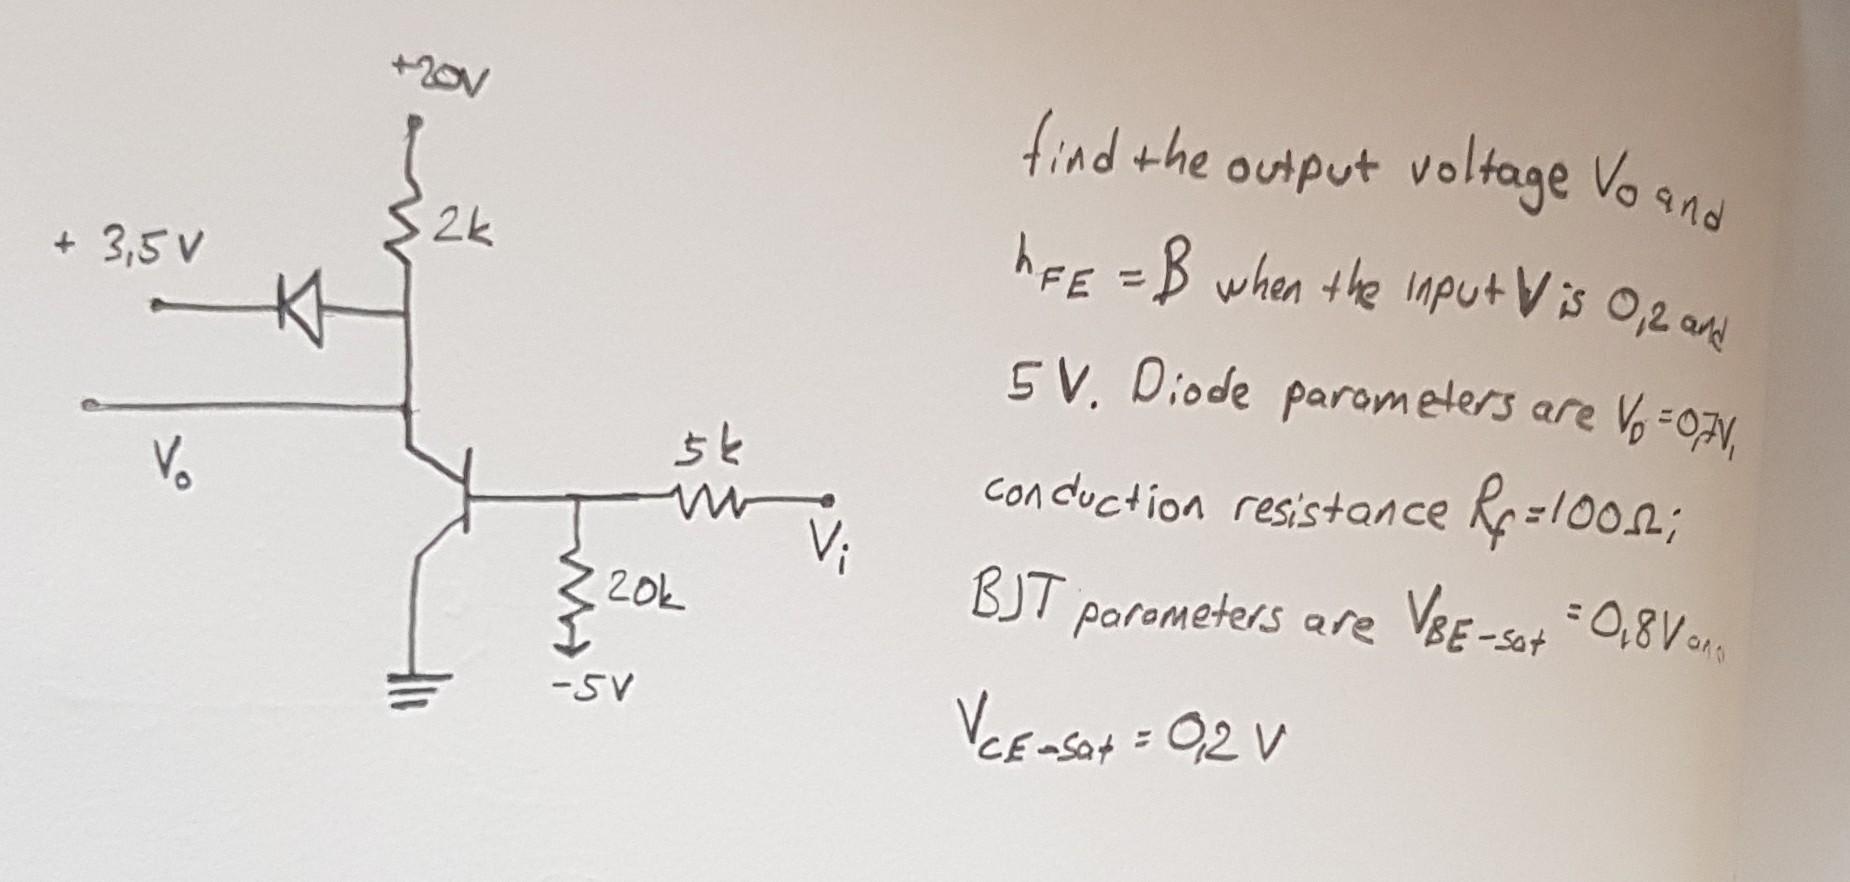 +20V
2k
+ 3,5 V
Vo
5k
Vi
20k
-5V
find the output voltage Vo and
hFE = B when the input V is 0,2 and
5 V. Diode parameters are VD=0,7V,
conduction resistance Rf=100Ω;
BJT parameters are VBE-sat =0,8V and
VCE-sat = 0,2 V